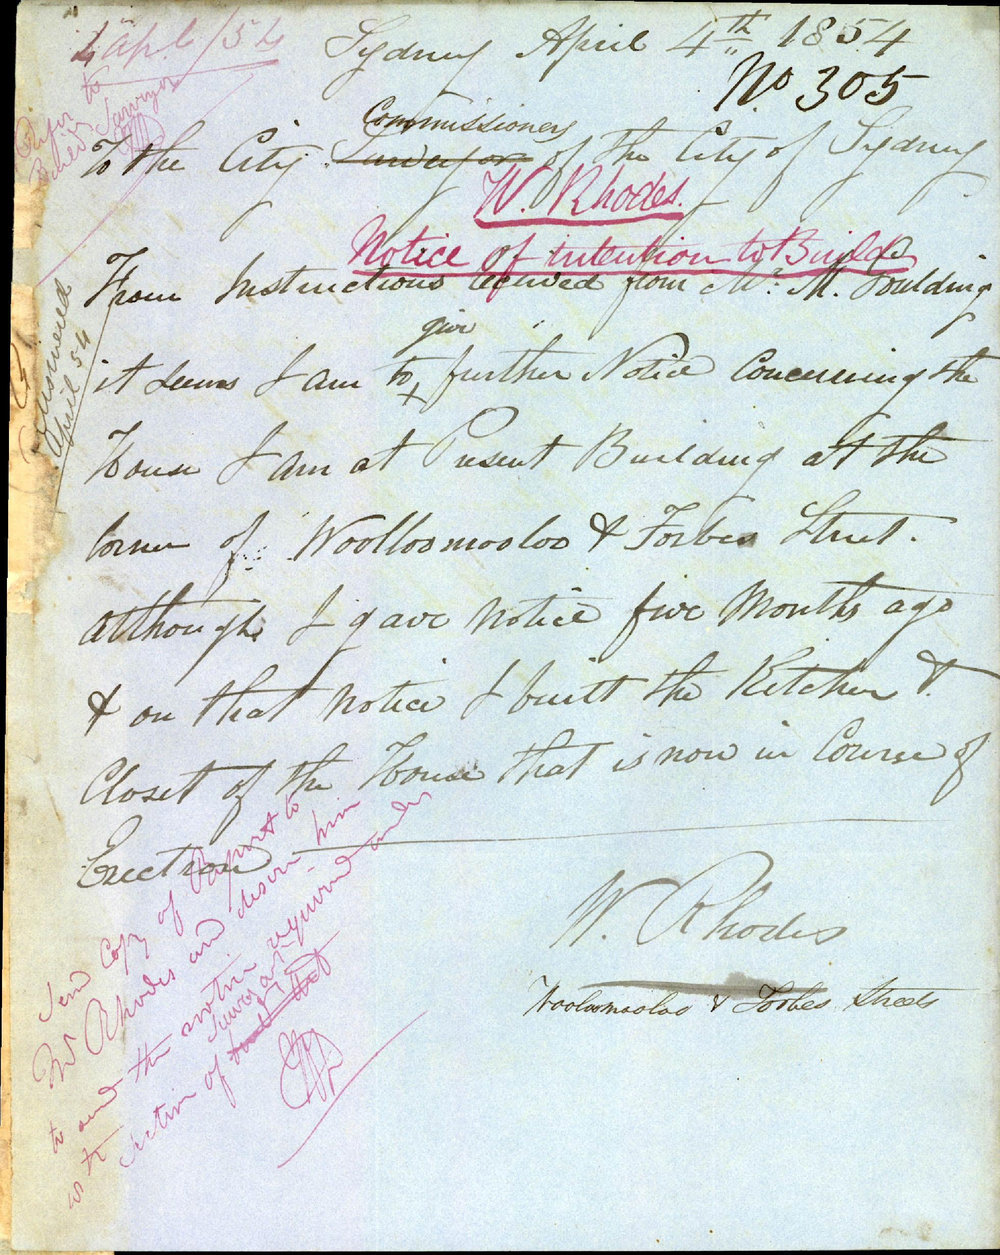 4 Apl /54
Sydney April 4th 1854
No 305
Refer
to
Build. Surveyor
Commissioners
To the City Surveyor of the City of Sydney
W. Rhodes.
Notice of intention to Build
From Instructions received from Mr. M. Goulding
give
it seems I am to further Notice Concerning the
House I am at Present Building at the
Corner of Woolloomooloo & Forbes Street.
although I gave Notice five Months ago
& on that Notice I built the Kitchen &
Closet of the House that is now in Course of
Erection
W. Rhodes
Wooloomooloo & Forbes Streets
Answered
April 54
Send Copy of Report to
Mr Rhodes and desire him
to send the notice required under
Section of